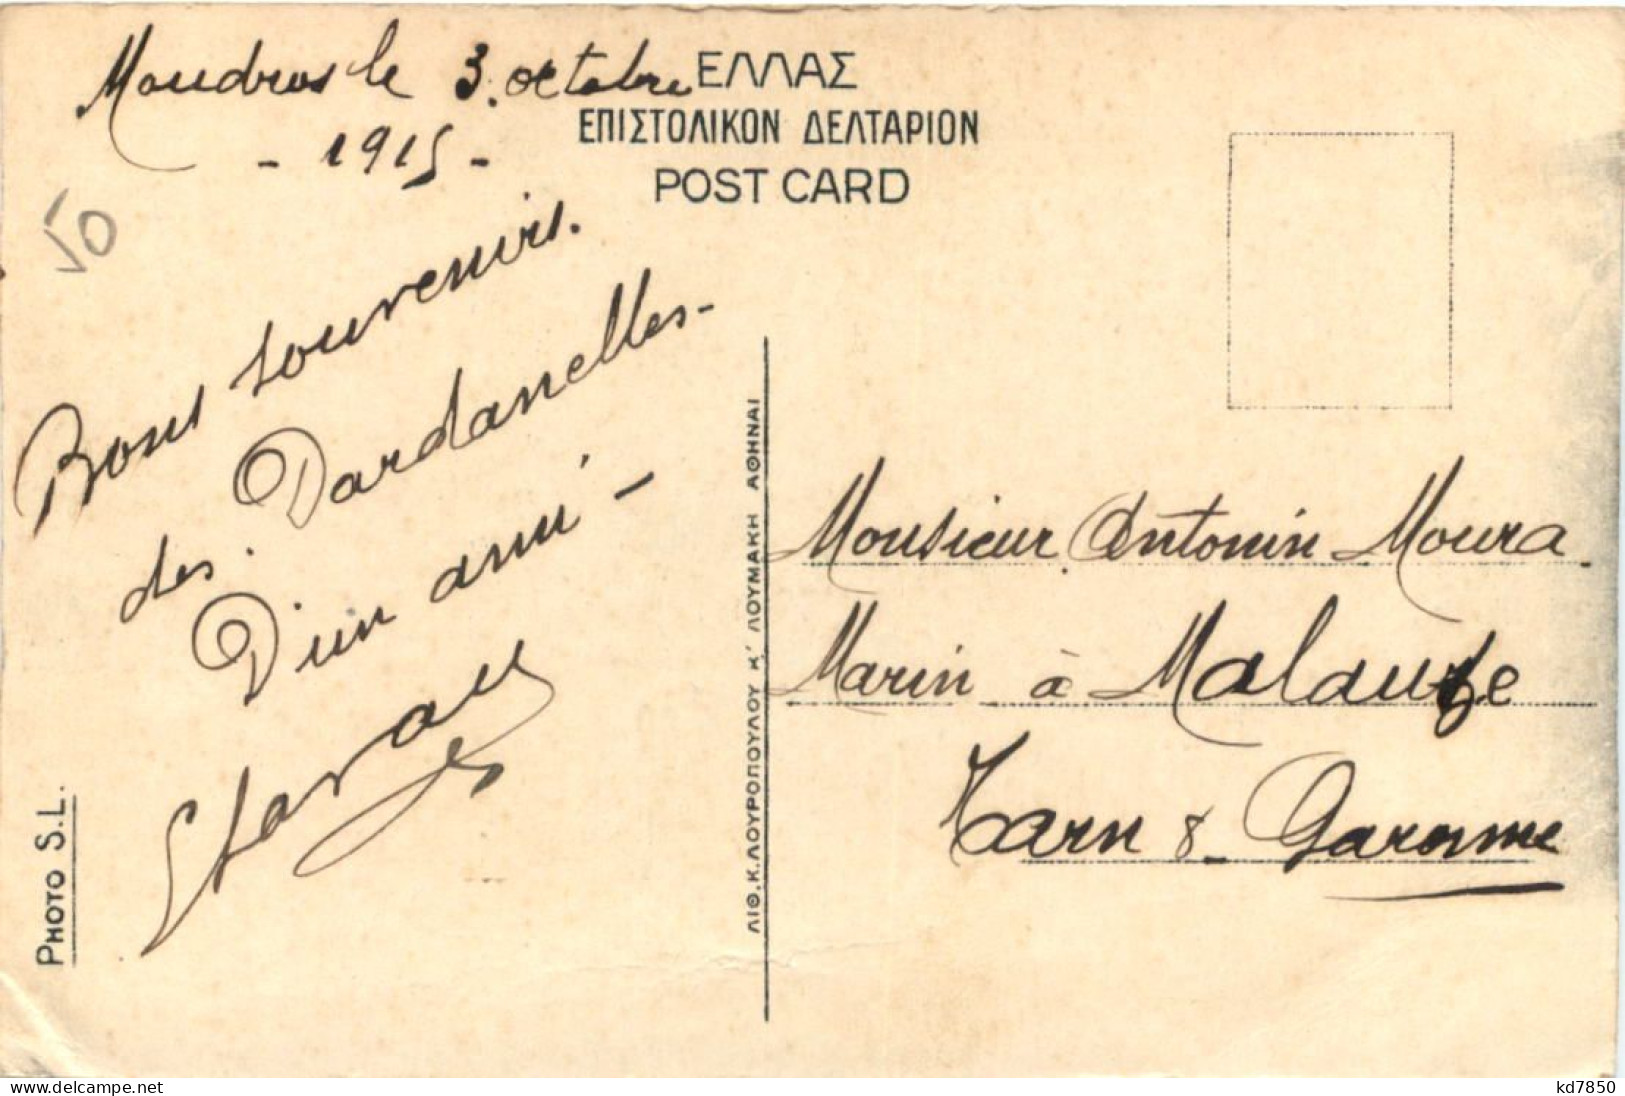 Moudros le 3. octobre
- 1915 -
50
ΕΛΛΑΣ
ΕΠΙΣΤΟΛΙΚΟΝ ΔΕΛΤΑΡΙΟΝ
POST CARD
Bons souvenirs.
des. Dardanelles-
D'un ami -
PHOTO S.L.
ΛΙΘ.Κ.ΛΟΥΡΟΠΟΥΛΟΥ Κ' ΛΟΥΜΑΚΗ ΑΘΗΝΑΙ
Monsieur Antonin Moura
Marin à Malauze
Tarn & Garonne
delcampe.net
kd7850